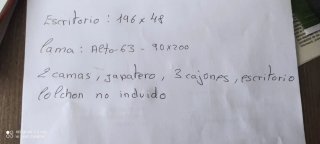 Escritorio : 196 x 48
Cama : Alto-63 - 90x200
2 camas, zapatero, 3 cajones, escritorio
Colchon no incluido